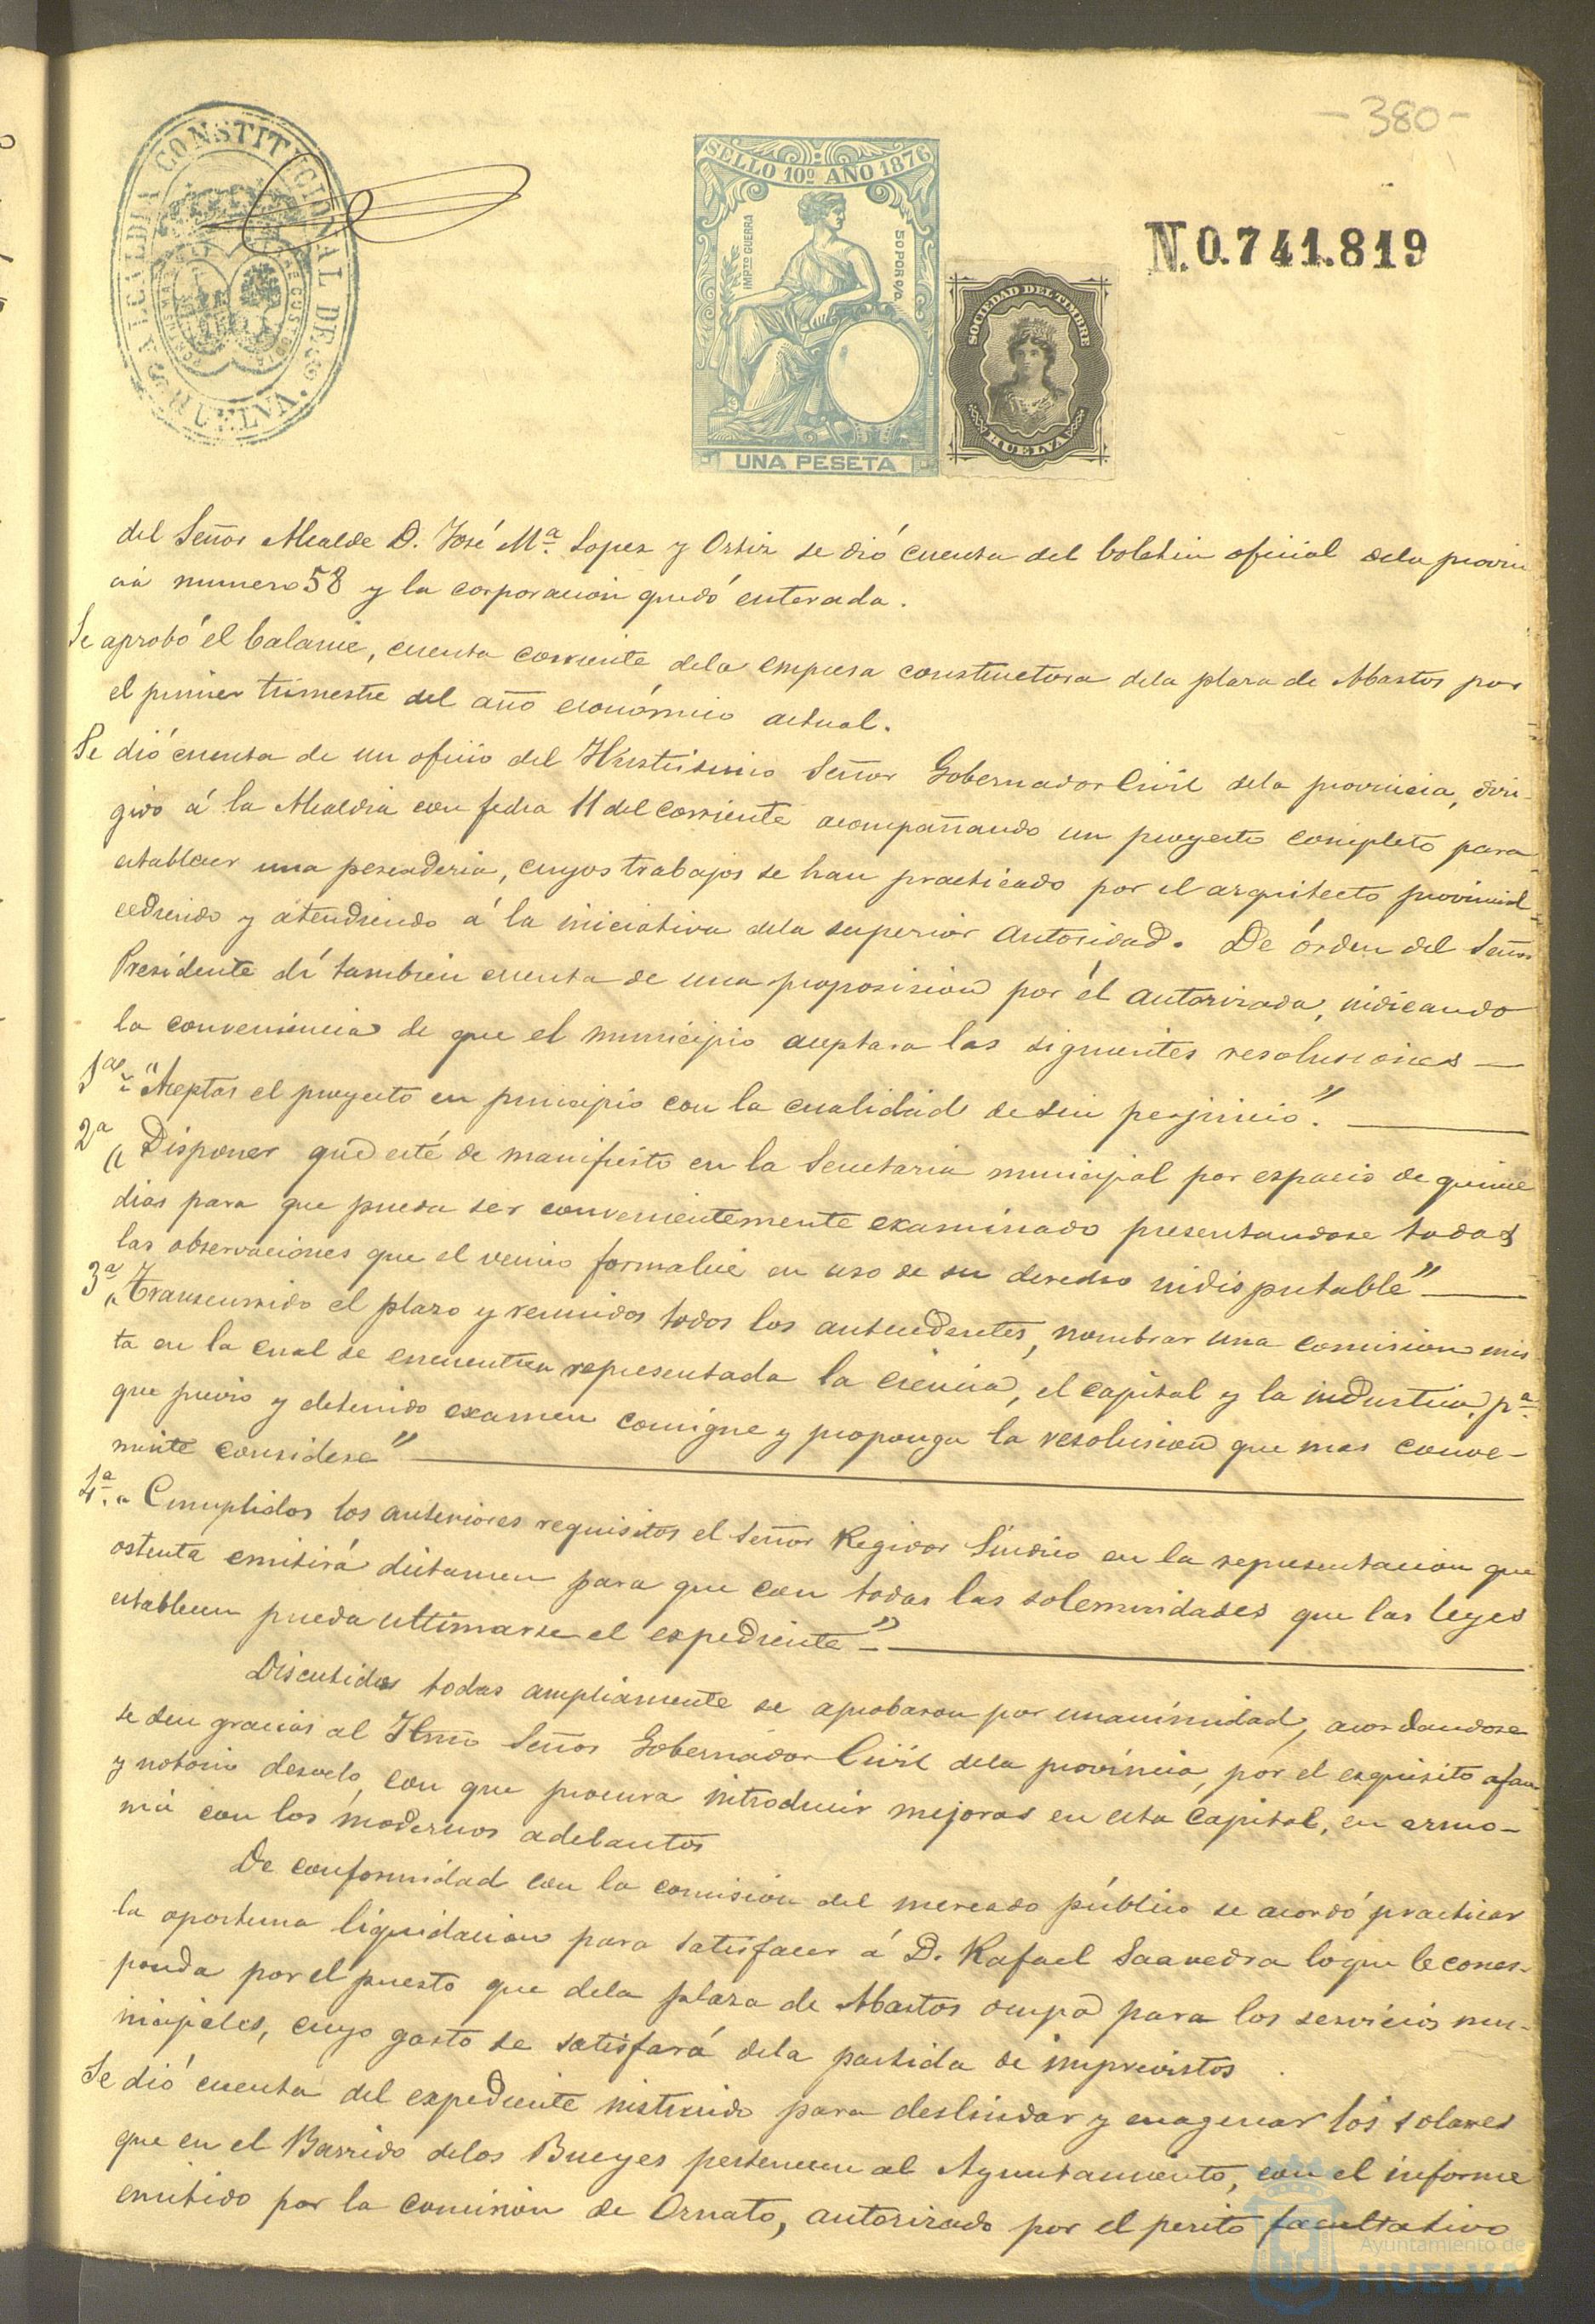 -380-
ALCALDIA CONSTITUCIONAL DE HUELVA
SELLO 10º AÑO 1876
IMPTO GUERRA
50 POR 0/0
UNA PESETA
SOCIEDAD DEL TIMBRE
HUELVA
N.0.741.819
del Señor Alcalde D. José Mª. Lopez y Ortiz se dió cuenta del boletin oficial dela provin
cia numero 58 y la corporacion quedó enterada.
Se aprobó el balance, cuenta corriente dela empresa constructora dela plaza de Abastos por
el primer trimestre del año económico actual.
Se dió cuenta de un oficio del Ilustrisimo Señor Gobernador Civil dela provincia, diri-
gido á la Alcaldia con fecha 11 del corriente acompañando un proyecto completo para
establecer una pescaderia, cuyos trabajos se han practicado por el arquitecto provincial-
cediendo y atendiendo á la iniciativa dela superior autoridad. De órden del Señor
Presidente dí tambien cuenta de una proposision por él autorizada, indicando
la conveniencia de que el municipio aceptara las siguientes resoluciones —
1ª "Aceptar el proyecto en principio con la cualidad de sin perjuicio".
2ª " Disponer que esté de manifiesto en la Secretaria municipal por espacio de quince
dias para que pueda ser convenientemente examinado presentandose todas
las observaciones que el vecino formalice en uso de su derecho indisputable"
3ª "Transcurrido el plazo y reunidos todos los antecedentes, nombrar una comision mis
ta en la cual se encuentren representada la ciencia, el capital y la industria, pª.
que previo y detenido examen consigne y proponga la resolusion que mas conve-
niente considere"
4ª. " Cumplidos los anteriores requisitos el Señor Regidor Sindico en la representacion que
ostenta emitirá dictamen para que con todas las solemnidades que las leyes
establecen pueda ultimarse el expediente"
Discutidas todas ampliamente se aprobaron por unanimidad, acordandose
se den gracias al Ilmo Señor Gobernador Civil dela provincia, por el esquisito afan
y notorio desvelo, con que procura introducir mejoras en esta Capital, en armo-
nia con los modernos adelantos
De conformidad con la comision del mercado público se acordó practicar
la oportuna liquidacion para satisfacer á D. Rafael Saavedra loque le corres-
ponda por el puesto que dela plaza de Abastos ocupa para los servicios mu-
nicipales, cuyo gasto se satisfará dela partida de imprevistos
Se dió cuenta del expediente instruido para deslindar y enagenar los solares
que en el Barrido delos Bueyes pertenecen al Ayuntamiento, con el informe
emitido por la comision de Ornato, autorizado por el perito facultativo
Ayuntamiento de
HUELVA